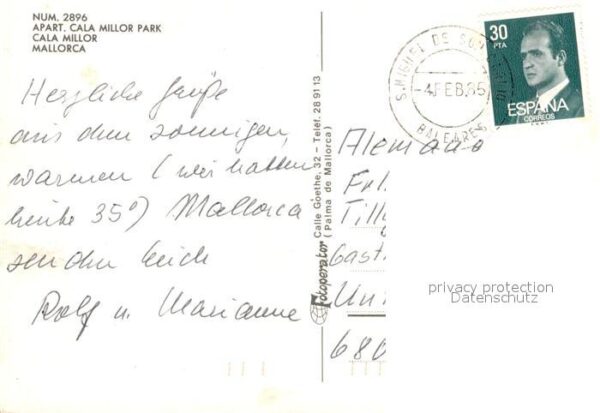 NUM. 2896
APART. CALA MILLOR PARK
CALA MILLOR
MALLORCA
Herzliche Grüße
aus dem sonnigen,
warmen (wir hatten
heute 35°) Mallorca
senden Euch
Rolf u. Marianne
Fotoperator Calle Goethe, 32 - Teléf. 28 91 13
(Palma de Mallorca)
S. MIGUEL DE
-4 FEB
BALEARES
30
PTA
ESPAÑA
CORREOS
Alemania
Frl.
Till
Gast
Un
680
privacy protection
Datenschutz